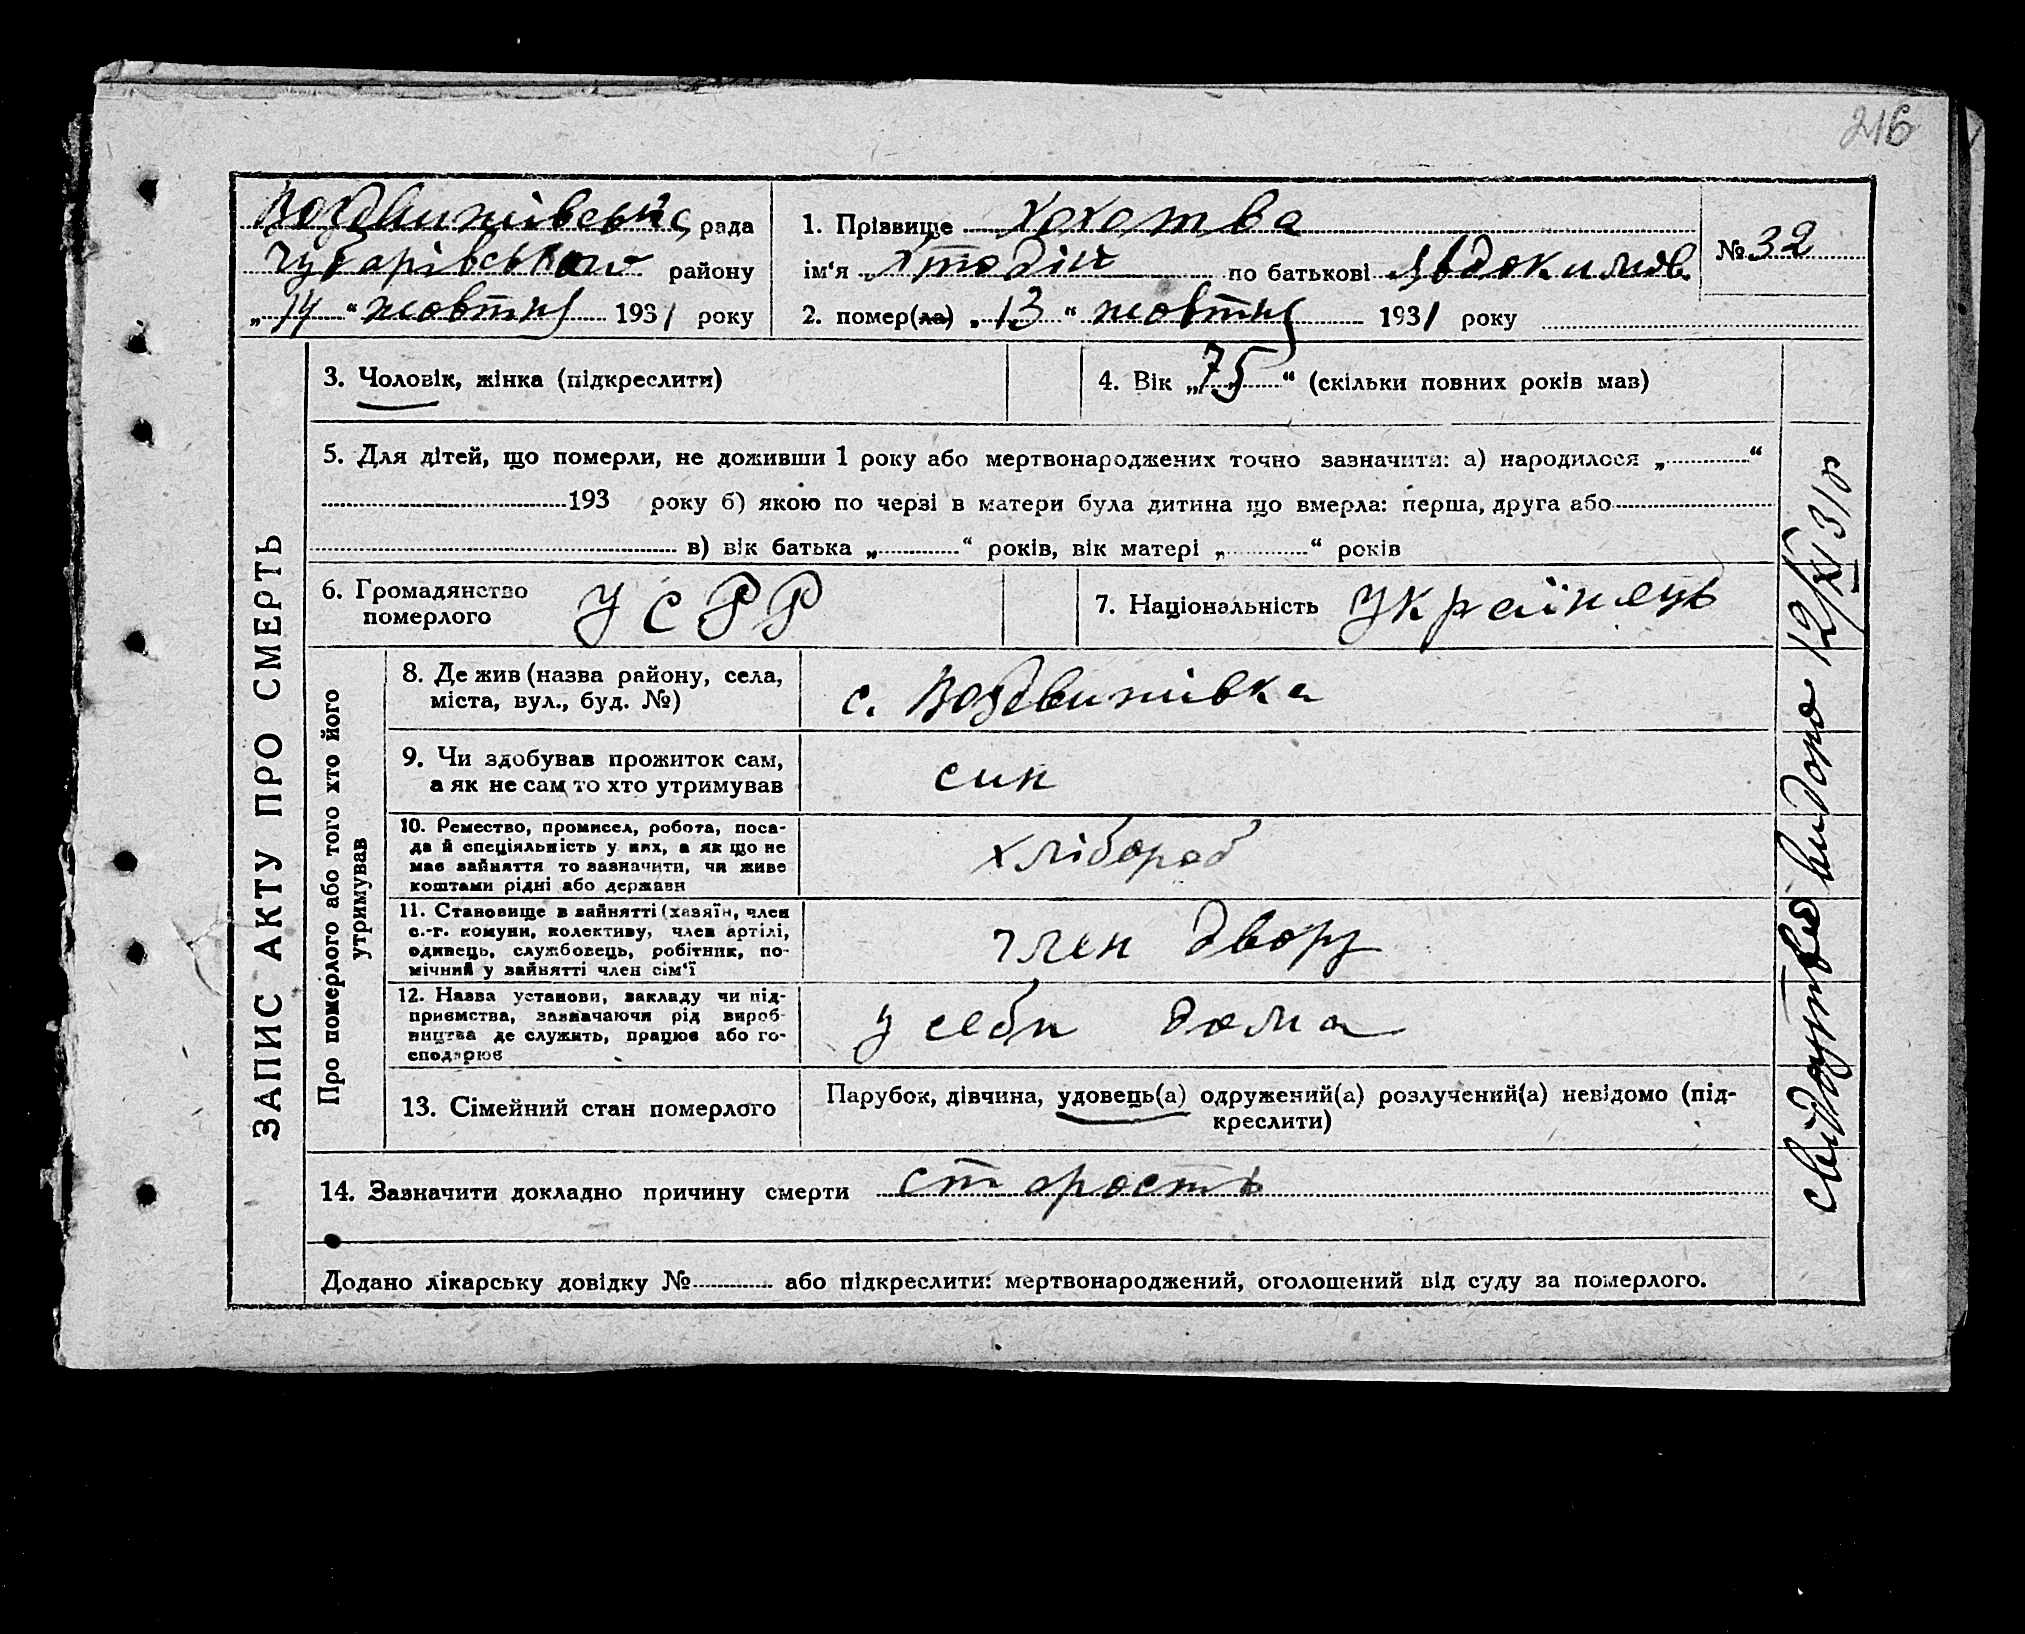 216
Воздвижівська рада
Чубарівського району
„14“ жовтня 1931 року
1. Прізвище Хохотва
ім'я по батькові Явдокимов.
2. помер(ла) „13“ жовтня 1931 року
№ 32
ЗАПИС АКТУ ПРО СМЕРТЬ
3. Чоловік, жінка (підкреслити)
4. Вік „75“ (скільки повних років мав)
5. Для дітей, що померли, не доживши 1 року або мертвонароджених точно зазначити: а) народилося „ “
193 року б) якою по черзі в матери була дитина що вмерла: перша, друга або
в) вік батька „ “ років, вік матері „ “ років
6. Громадянство
померлого
УСРР
7. Національність Українець
Про померлого або того хто його
утримував
8. Де жив (назва району, села,
міста, вул., буд. №)
с. Воздвижівка
9. Чи здобував прожиток сам,
а як не сам то хто утримував
син
10. Ремество, промисел, робота, поса-
да й спеціяльність у них, а як що не
має зайняття то зазначити, чи живе
коштами рідні або держави
хлібороб
11. Становище в зайнятті (хазяїн, член
с.-г. комуни, колективу, член артілі,
одинець, службовець, робітник, по-
мічний у зайнятті член сім'ї
член двору
12. Назва установи, закладу чи під-
приємства, зазначаючи рід вироб-
ництва де служить, працює або го-
сподарює
у себи дома
13. Сімейний стан померлого
Парубок, дівчина, удовець(а) одружений(а) розлучений(а) невідомо (під-
креслити)
14. Зазначити докладно причину смерти старость
Додано лікарську довідку № або підкреслити: мертвонароджений, оголошений від суду за померлого.
видоно 12/XI 31 р